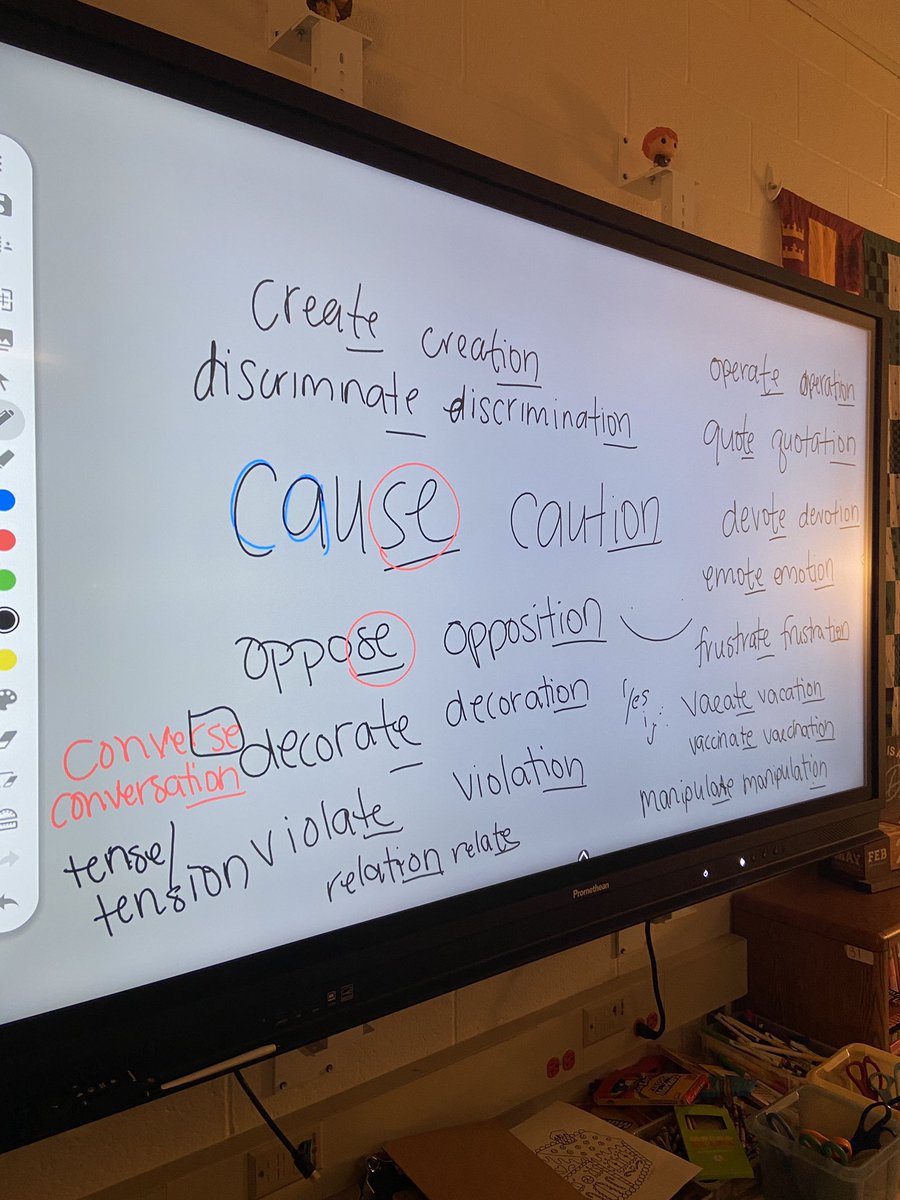 create creation
discrimnate discrimination
cause caution
oppose opposition
decorate decoration
violate violation
relation relate
converse
conversation
tense/
tension
operate operation
quote quotation
devote devotion
emote emotion
frustrate frustration
Yes
vacate vacation
vaccinate vaccination
manipulate manipulation
Promethean
FEB
31